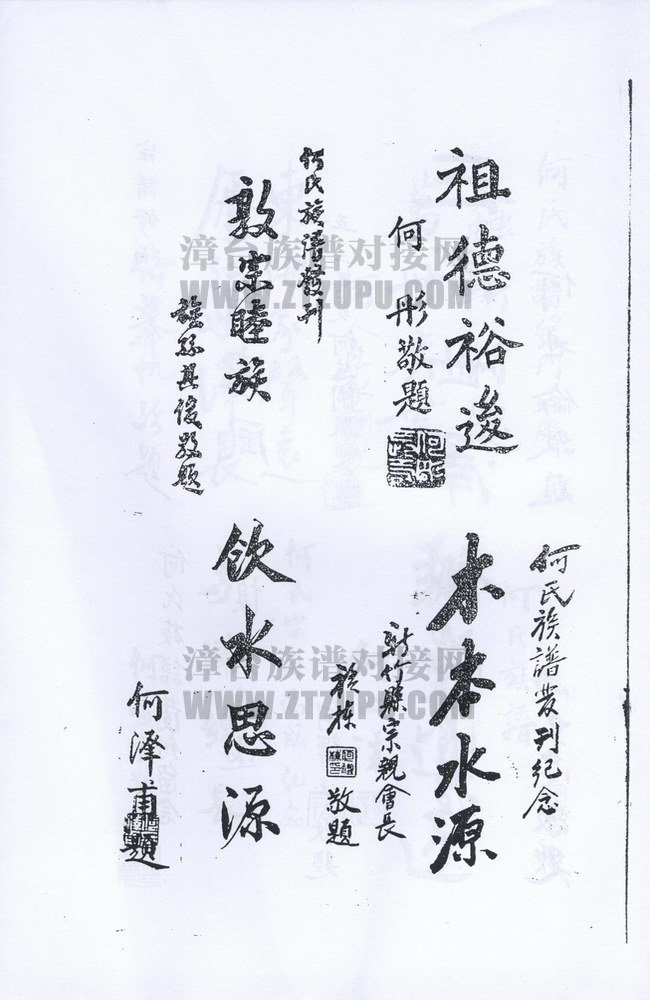 祖德裕後
何彤敬題
何氏族譜發刊
敦宗睦族
族孫其俊敬題
何氏族譜發刊紀念
木本水源
新竹縣宗親會長
敬題
飲水思源
何澤甫題
漳台族谱对接网
WWW.ZTZUPU.COM
漳台族谱对接网
WWW.ZTZUPU.COM